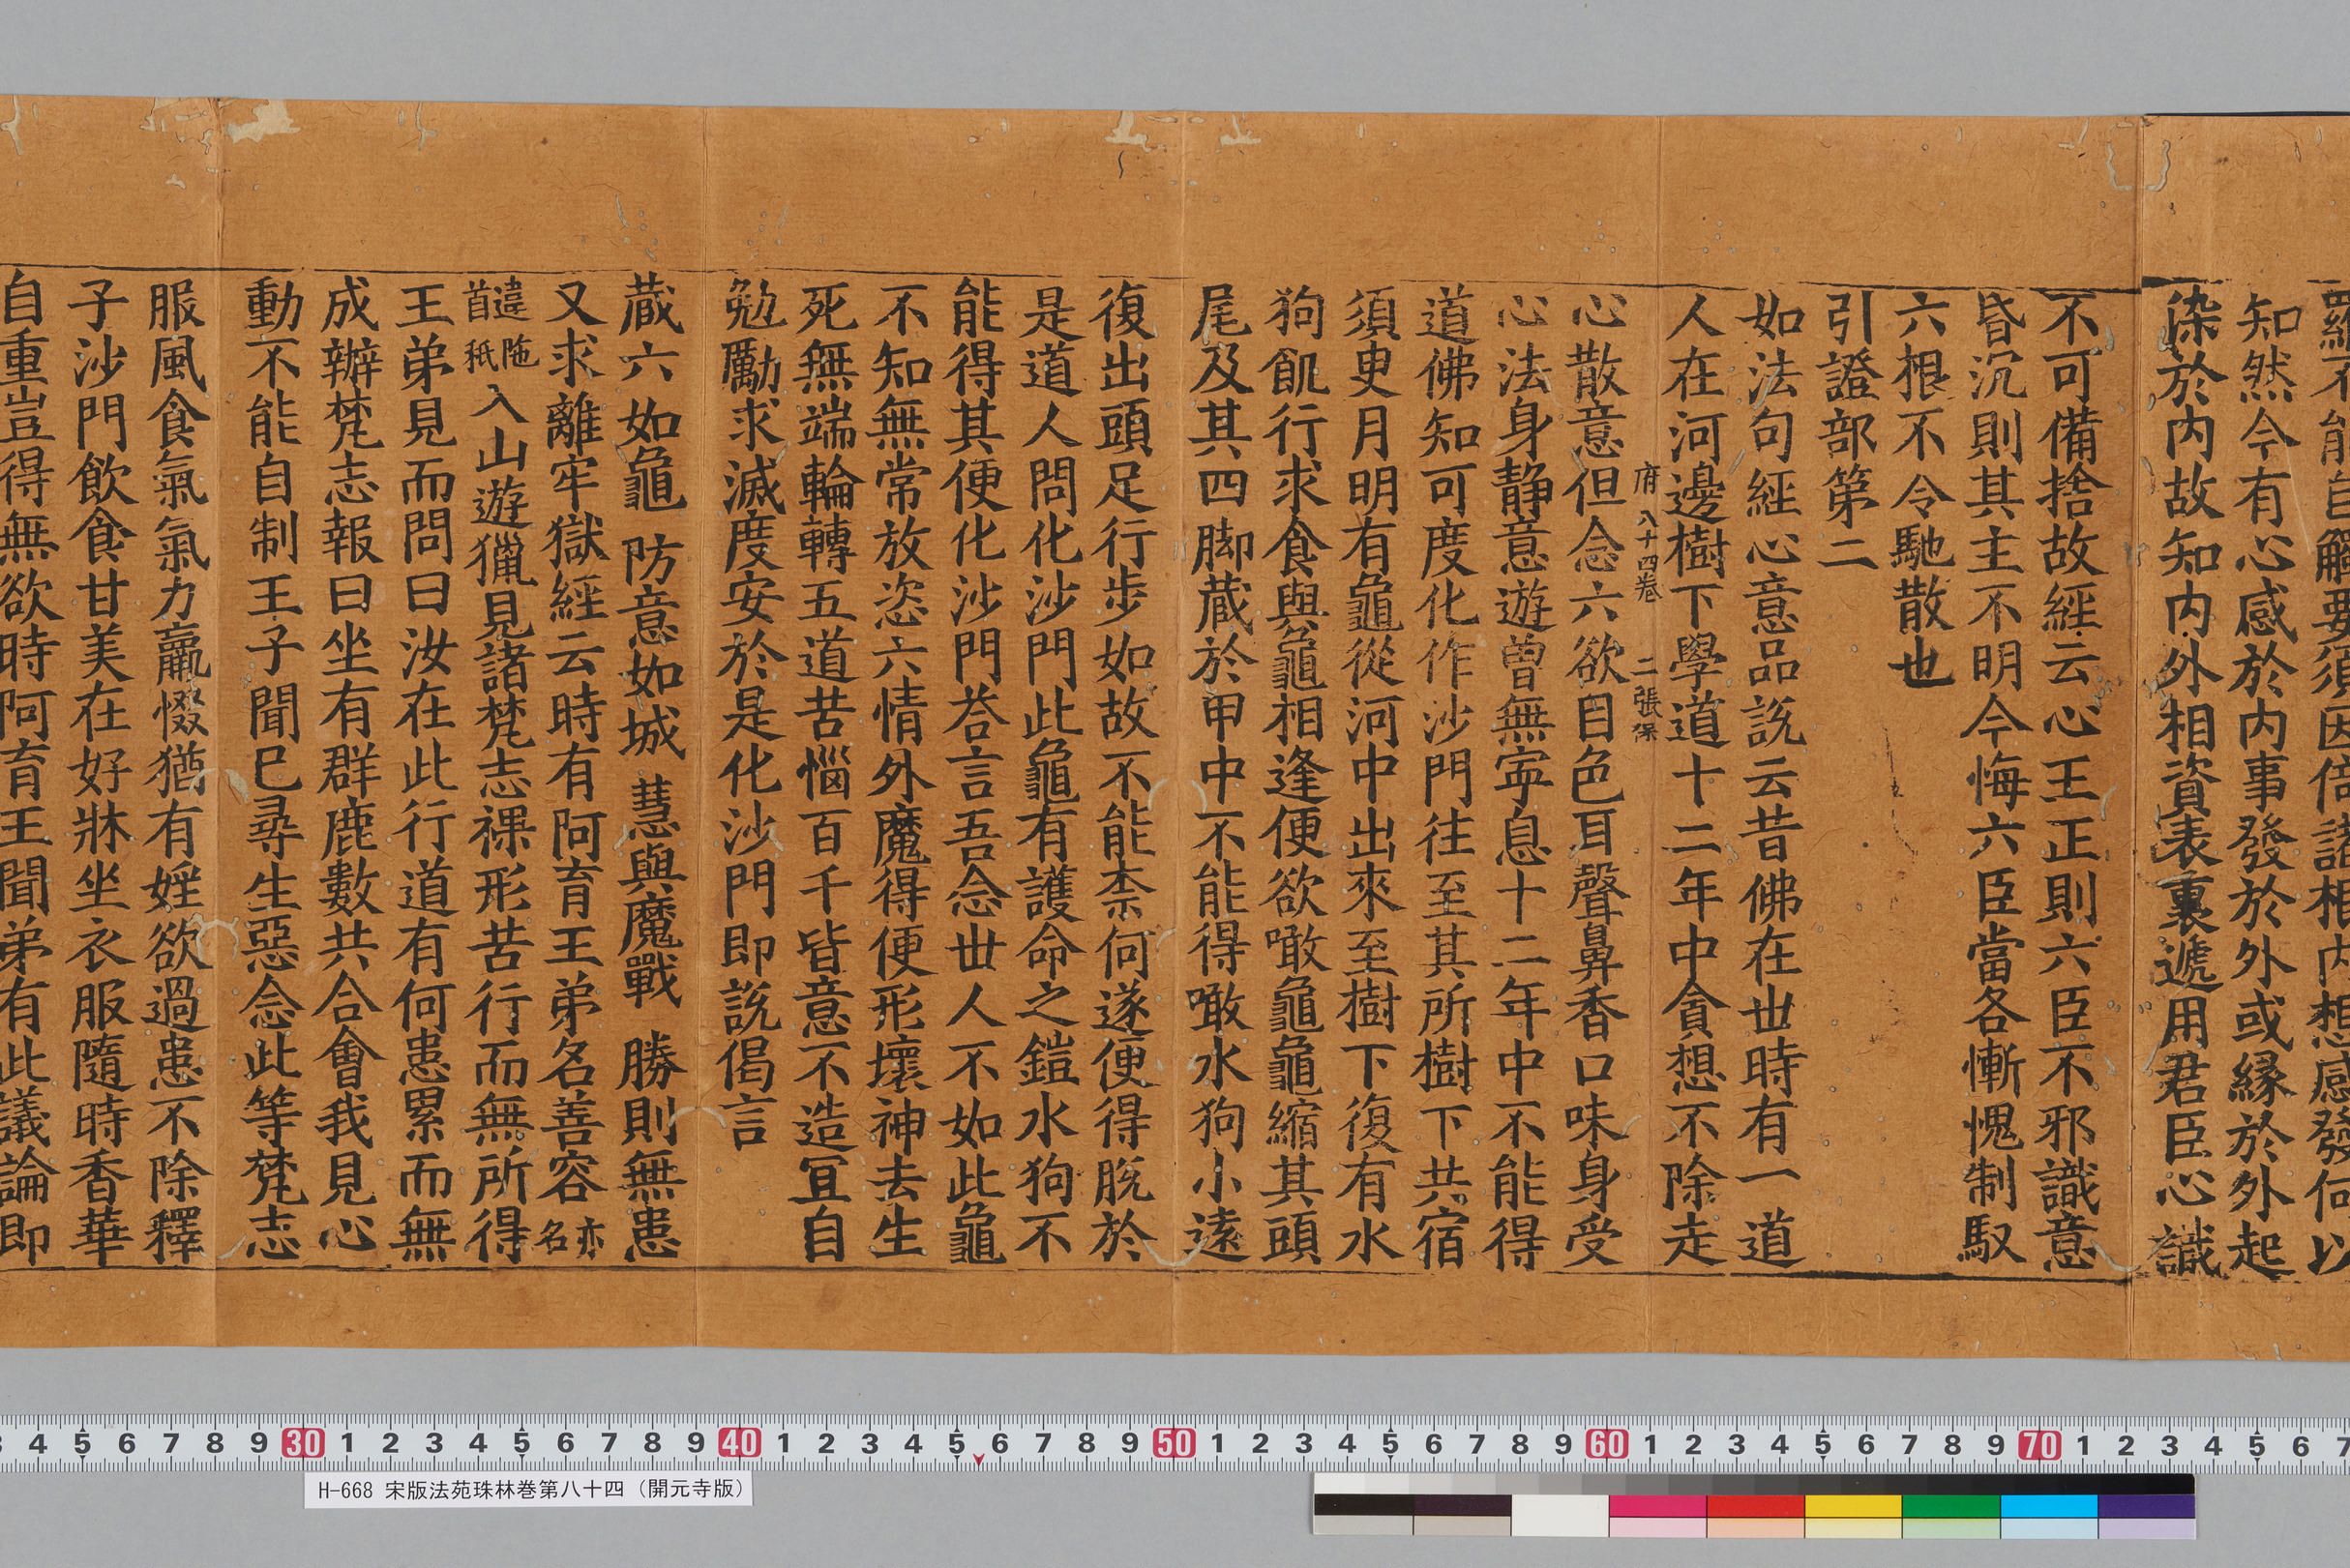 羅不能自觸要須因倚諸相内想感發何以
知然今有心感於内事發於外或緣於外起
染於内故知内外相資表裏遞用君臣心識
不可備捨故經云心王正則六臣不邪識意
昏沉則其主不明今悔六臣當各慚愧制馭
六根不令馳散也
引證部第二
如法句經心意品說云昔佛在世時有一道
人在河邊樹下學道十二年中貪想不除走
府 八十四卷 二張 保
心散意但念六欲目色耳聲鼻香口味身受
心法身静意遊曾無寧息十二年中不能得
道佛知可度化作沙門往至其所樹下共宿
須臾月明有龜從河中出來至樹下復有水
狗飢行求食與龜相逢便欲噉龜龜縮其頭
尾及其四脚蔵於甲中不能得噉水狗小遠
復出頭足行步如故不能柰何遂便得脫於
是道人問化沙門此龜有護命之鎧水狗不
能得其便化沙門荅言吾念世人不如此龜
不知無常放恣六情外魔得便形壞神去生
死無端輪轉五道苦惱百千皆意不造冝自
勉勵求滅度安於是化沙門即說偈言
蔵六如龜 防意如城 慧與魔戰 勝則無患
又求離牢獄經云時有阿育王弟名善容亦名
違陁首秖入山遊獵見諸梵志裸形苦行而無所得
王弟見而問曰汝在此行道有何患累而無
成辦梵志報曰坐有群鹿數共合會我見心
動不能自制王子聞巳尋生惡念此等梵志
服風食氣氣力羸惙猶有婬欲過患不除釋
子沙門飲食甘美在好牀坐衣服隨時香華
自重豈得無欲時阿育王聞弟有此議論即
3 4 5 6 7 8 9 30 1 2 3 4 5 6 7 8 9 40 1 2 3 4 5 6 7 8 9 50 1 2 3 4 5 6 7 8 9 60 1 2 3 4 5 6 7 8 9 70 1 2 3 4 5 6 7
H-668 宋版法苑珠林巻第八十四（開元寺版）